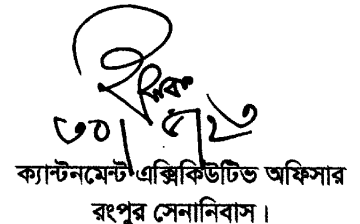 ৩০/৫/২৩
ক্যান্টনমেন্ট এক্সিকিউটিভ অফিসার
রংপুর সেনানিবাস।